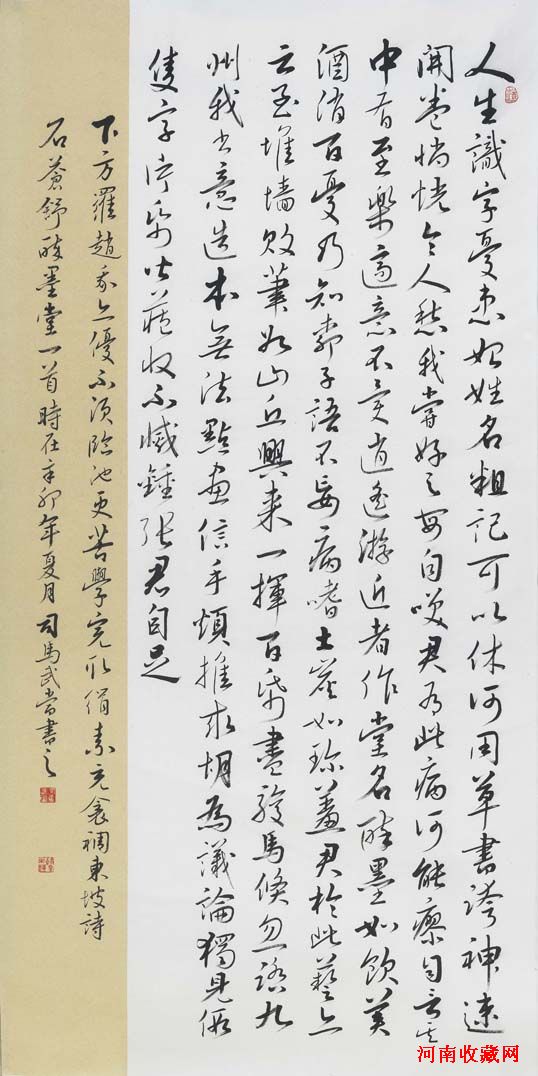 人生識字憂患始姓名粗記可以休何用草書誇神速
開卷惝恍令人愁我嘗好之每自笑君有此病何能瘳自言其
中有至樂適意不異逍遙游近者作堂名醉墨如飲美
酒消百憂乃知柳子語不妄病嗜土炭如珍羞君於此藝亦
云至堆墻敗筆如山丘興來一揮百紙盡駿馬倏忽踏九
州我書意造本無法點畫信手煩推求胡為議論獨見假
隻字片紙皆藏收不減鍾張君自足
下方羅趙我亦優不須臨池更苦學完取絹素充衾裯東坡詩
石蒼舒醉墨堂一首時在辛卯年夏月司馬武當書之
河南收藏网